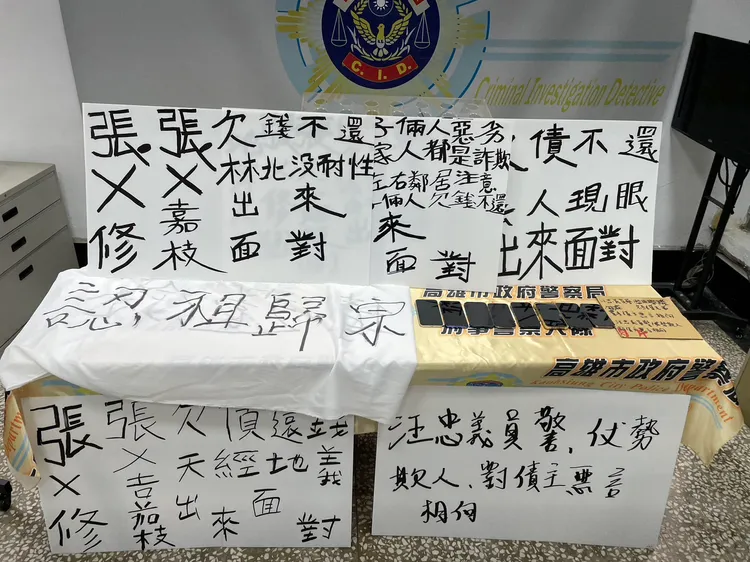 C.I.D.
Criminal Investigation Detective
張 張
× ×
修 嘉
枝
欠錢不還
林北没耐性
出來
面對
子倆人惡劣
家人都是詐欺
左右鄰居注意
倆人欠錢不還
來
面對
債不還
人現眼
出來面對
認祖歸宗
高雄市政府警察局
刑事警察大隊
高雄市政府警察
Kaohsiung City Police Department
張張欠債還錢
××天經地義
修嘉出面
枝來對
汪忠義員警,仗勢
欺人、對債主惡言
相向